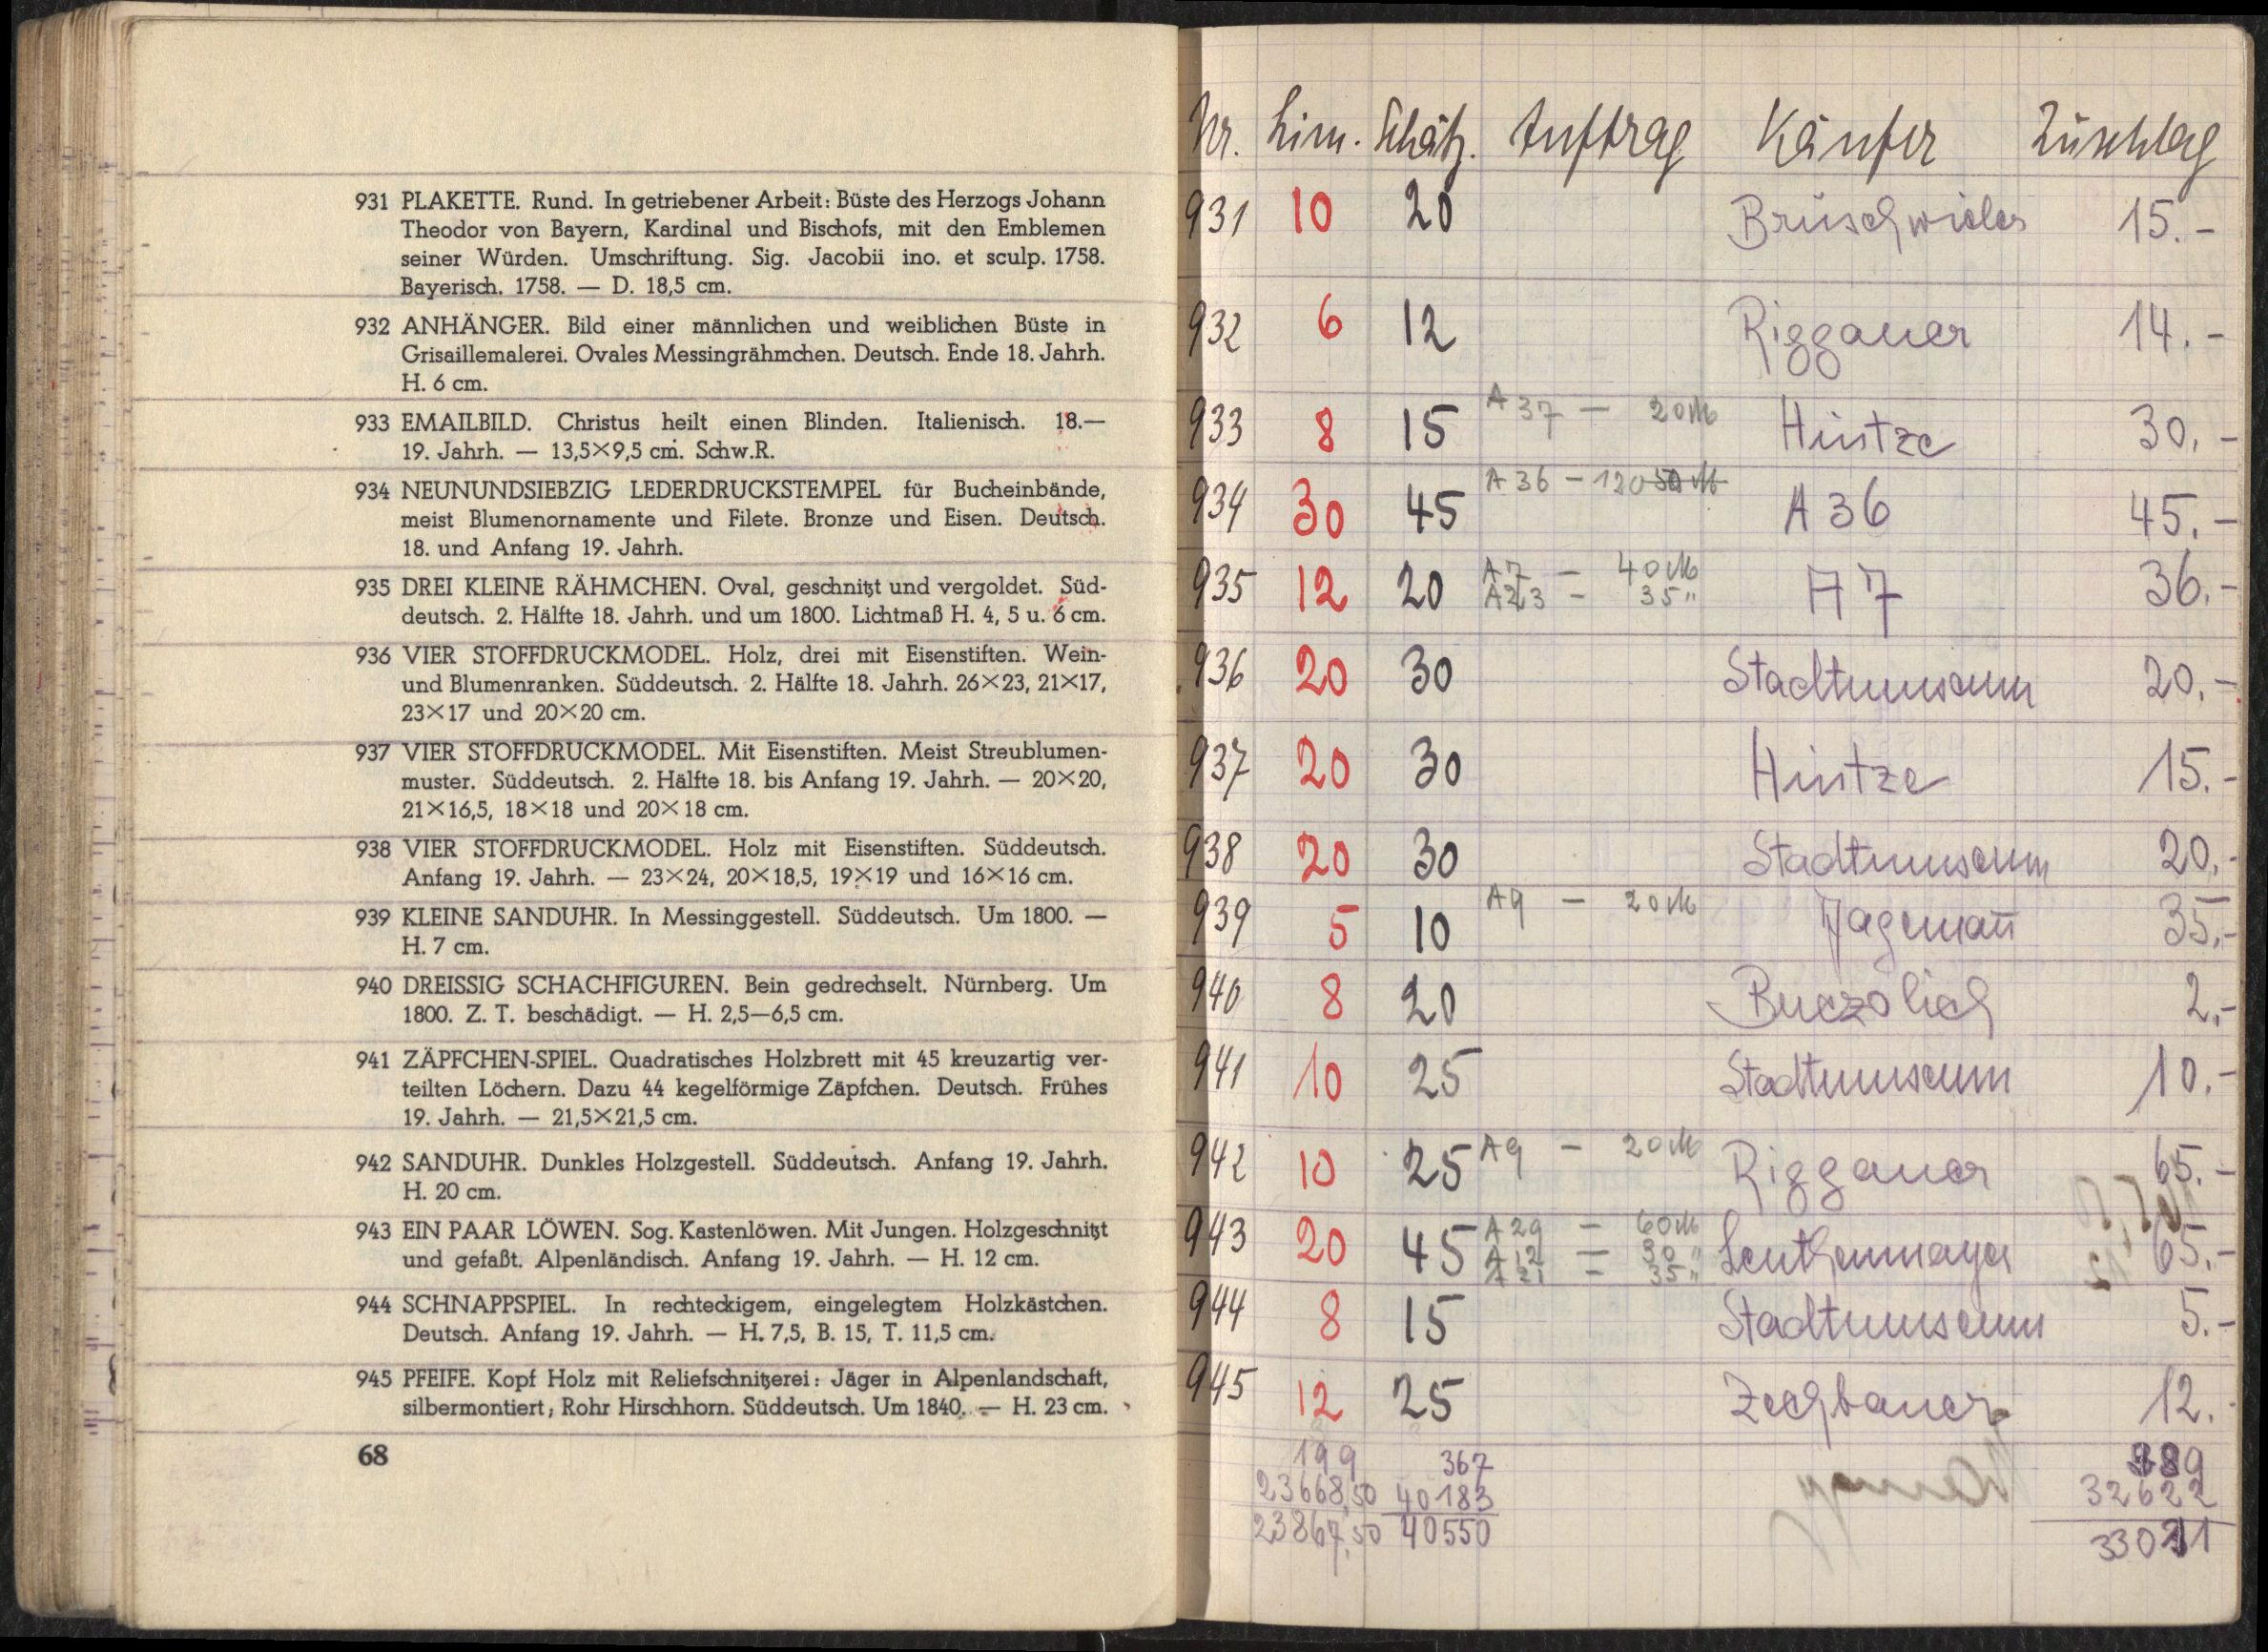 931 PLAKETTE. Rund. In getriebener Arbeit: Büste des Herzogs Johann
Theodor von Bayern, Kardinal und Bischofs, mit den Emblemen
seiner Würden. Umschriftung. Sig. Jacobii ino. et sculp. 1758.
Bayerisch. 1758. — D. 18,5 cm.
932 ANHÄNGER. Bild einer männlichen und weiblichen Büste in
Grisaillemalerei. Ovales Messingrähmchen. Deutsch. Ende 18. Jahrh.
H. 6 cm.
933 EMAILBILD. Christus heilt einen Blinden. Italienisch. 18.—
19. Jahrh. — 13,5×9,5 cm. Schw.R.
934 NEUNUNDSIEBZIG LEDERDRUCKSTEMPEL für Bucheinbände,
meist Blumenornamente und Filete. Bronze und Eisen. Deutsch.
18. und Anfang 19. Jahrh.
935 DREI KLEINE RÄHMCHEN. Oval, geschnitzt und vergoldet. Süd-
deutsch. 2. Hälfte 18. Jahrh. und um 1800. Lichtmaß H. 4, 5 u. 6 cm.
936 VIER STOFFDRUCKMODEL. Holz, drei mit Eisenstiften. Wein-
und Blumenranken. Süddeutsch. 2. Hälfte 18. Jahrh. 26×23, 21×17,
23×17 und 20×20 cm.
937 VIER STOFFDRUCKMODEL. Mit Eisenstiften. Meist Streublumen-
muster. Süddeutsch. 2. Hälfte 18. bis Anfang 19. Jahrh. — 20×20,
21×16,5, 18×18 und 20×18 cm.
938 VIER STOFFDRUCKMODEL. Holz mit Eisenstiften. Süddeutsch.
Anfang 19. Jahrh. — 23×24, 20×18,5, 19×19 und 16×16 cm.
939 KLEINE SANDUHR. In Messinggestell. Süddeutsch. Um 1800. —
H. 7 cm.
940 DREISSIG SCHACHFIGUREN. Bein gedrechselt. Nürnberg. Um
1800. Z. T. beschädigt. — H. 2,5—6,5 cm.
941 ZÄPFCHEN-SPIEL. Quadratisches Holzbrett mit 45 kreuzartig ver-
teilten Löchern. Dazu 44 kegelförmige Zäpfchen. Deutsch. Frühes
19. Jahrh. — 21,5×21,5 cm.
942 SANDUHR. Dunkles Holzgestell. Süddeutsch. Anfang 19. Jahrh.
H. 20 cm.
943 EIN PAAR LÖWEN. Sog. Kastenlöwen. Mit Jungen. Holzgeschnitzt
und gefaßt. Alpenländisch. Anfang 19. Jahrh. — H. 12 cm.
944 SCHNAPPSPIEL. In rechteckigem, eingelegtem Holzkästchen.
Deutsch. Anfang 19. Jahrh. — H. 7,5, B. 15, T. 11,5 cm.
945 PFEIFE. Kopf Holz mit Reliefschnitzerei: Jäger in Alpenlandschaft,
silbermontiert; Rohr Hirschhorn. Süddeutsch. Um 1840. — H. 23 cm.
68
Nr. Lim. Schätz. Auftrag Käufer Zuschlag
931 10 20 Brüschwieler 15.-
932 6 12 Riggauer 14.-
933 8 15 A 37 - 20 M Hintze 30.-
934 30 45 A 36 - 120 50 M A 36 45.-
935 12 20 A7 - 40 M A 7 36.-
A23 - 35 "
936 20 30 Stadtmuseum 20.-
937 20 30 Hintze 15.-
938 20 30 Stadtmuseum 20.-
939 5 10 A9 - 20 M Jagemañ 35.-
940 8 20 Buczolich 2.-
941 10 25 Stadtmuseum 10.-
942 10 25 A9 - 20 M Riggauer 65.-
943 20 45 A 29 - 60 M Leuthenmayr 65.-
A 12 - 30 "
A 21 - 35 "
944 8 15 Stadtmuseum 5.-
945 12 25 Zechbauer 12.
199 367 389
23668,50 40183 32622
23867,50 40550